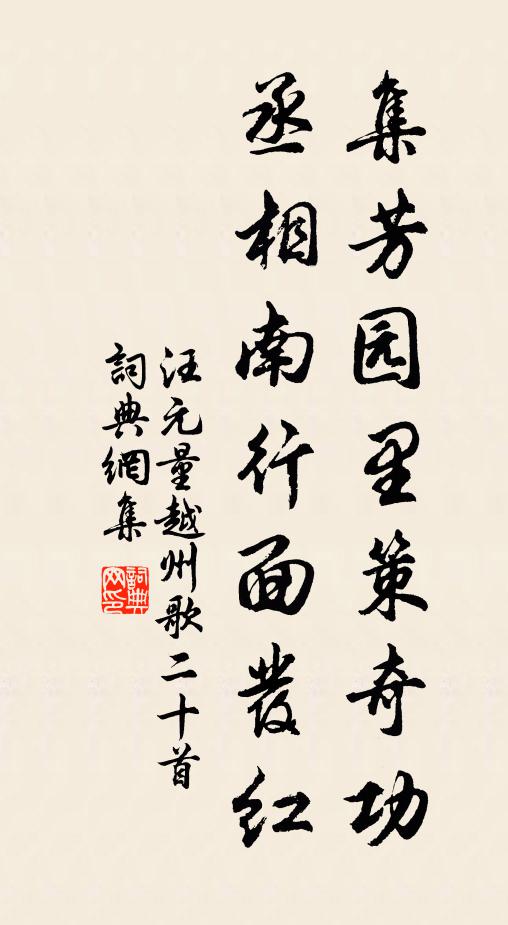 集芳园里策奇功
丞相南行面發红
汪元量越州歌二十首
詞典網集
詞典網印